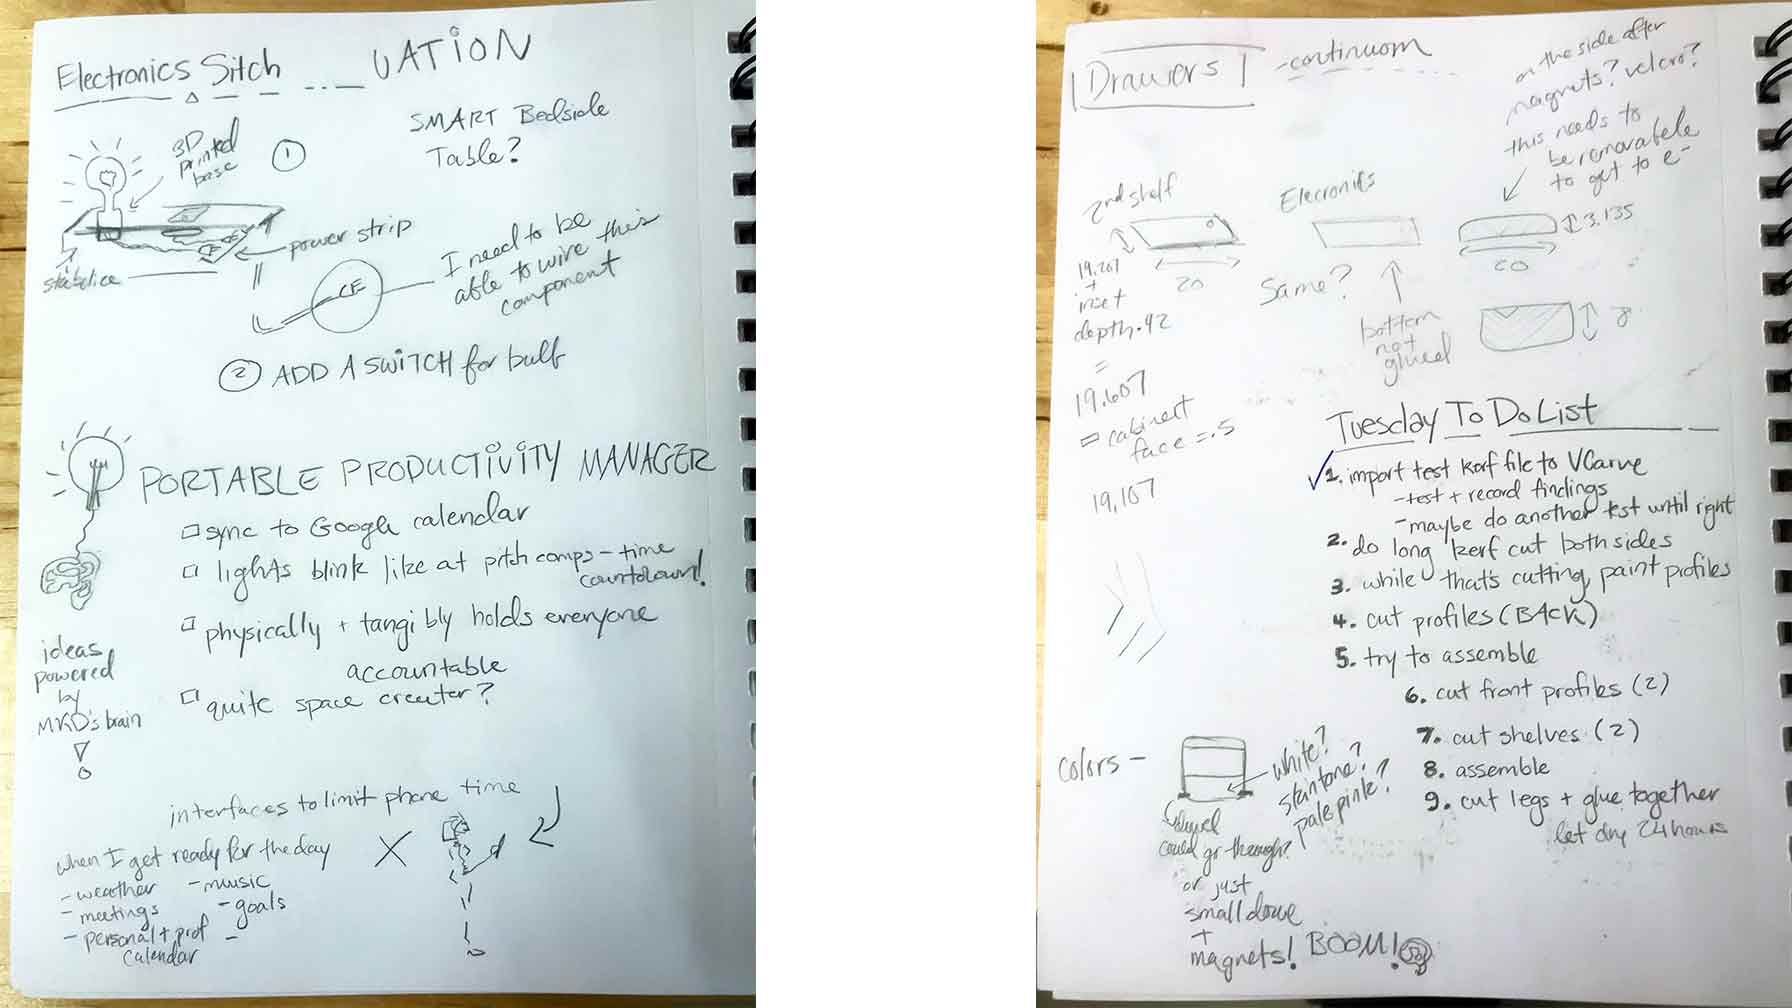 Electronics Sitch ... UATION
SMART Bedside
Table?
3D
printed
base
1
power strip
I need to be
able to wire this
component
2 ADD A SWITCH for bulb
PORTABLE PRODUCTIVITY MANAGER
sync to Google calendar
lights blink like at pitch comps - time
countdown!
physically + tangibly holds everyone
accountable
quite space creater?
ideas
powered
by
MKD's brain
interfaces to limit phone time
when I get ready for the day
- weather
- meetings
- personal + prof
calendar
- music
- goals
-
Drawers - continuom
on the side after
magnets? velcro?
this needs to
be removabele
to get to e-
2nd shelf
19.207
+
inset
depth.42
=
19.607
= cabinect
face = .5
19,107
20
Elecronics
Same?
bottom
not
glued
3.135
20
8.
Tuesday To Do List
1. import test kerf file to VCarve
- test + record findings
- maybe do another test until right
2. do long kerf cut both sides
3. while that's cutting, paint profiles
4. cut profiles (BACK)
5. try to assemble
6. cut front profiles (2)
7. cut shelves (2)
8. assemble
9. cut legs + glue together
let dry 24 hours
colors -
white?
skintone?
pale pink?
could go through?
or just
small dowe
+
magnets! BOOM!